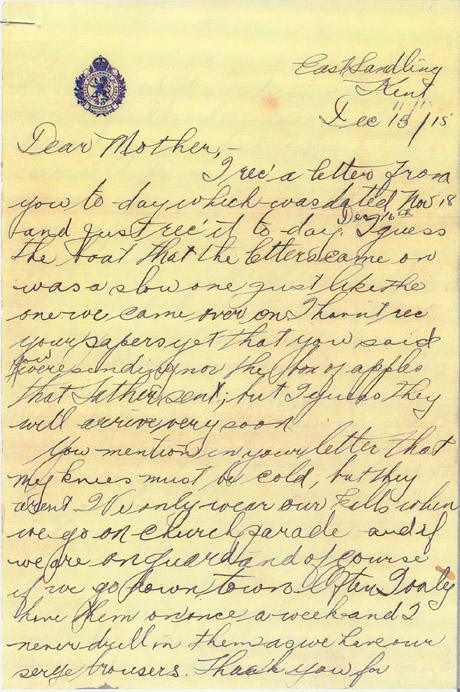 East Sandling
Kent
Dec 15/15
Dear Mother,-
I rec'd a letter from
you to day which was dated Nov 18
and just rec' it to day. Dec 16th I guess
the boat that the letters came on
was a slow one just like the
one we came over on. I havn't rec
your papers yet that you said
you were sending nor the box of apples
that Father sent, but I guess they
will arrive very soon
You mention in your letter that
my knees must be cold, but they
arent. We only wear our kilts when
we go on church parade and if
we are on guard and of course
if we go down town. Often I only
have them on once a week and I
never drill in them as we have our
serge trousers. Thank you for